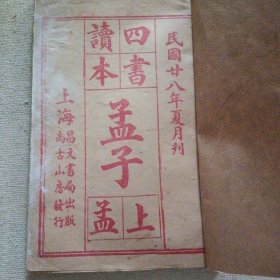 民國廿八年夏月刊
四書
讀本
孟子
上
孟
上海昌文書局出版
萬古山房發行